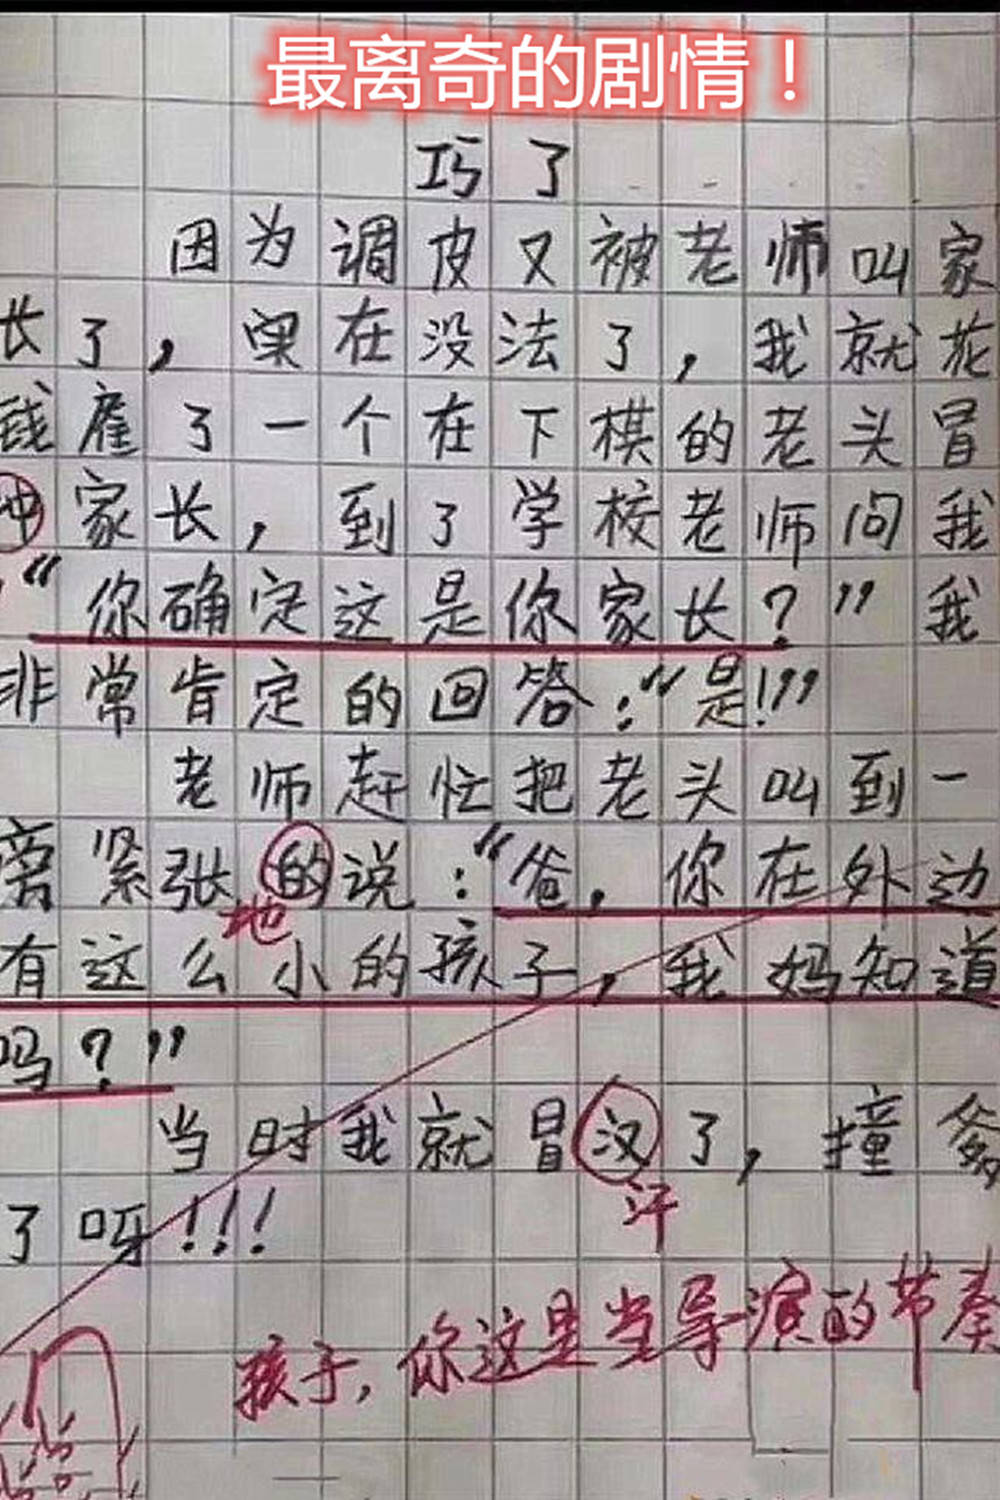 最离奇的剧情！
巧了
因为调皮又被老师叫家
长了，实在没法了，我就花
钱雇了一个在下棋的老头冒
冲家长，到了学校老师问我
，“你确定这是你家长？”我
非常肯定的回答：“是！”
老师赶忙把老头叫到一
旁紧张的说：“爸，你在外边
地
有这么小的孩子，我妈知道
吗？”
当时我就冒汉了，撞爹
汗
了呀！！！
孩子，你这是当导演的节奏